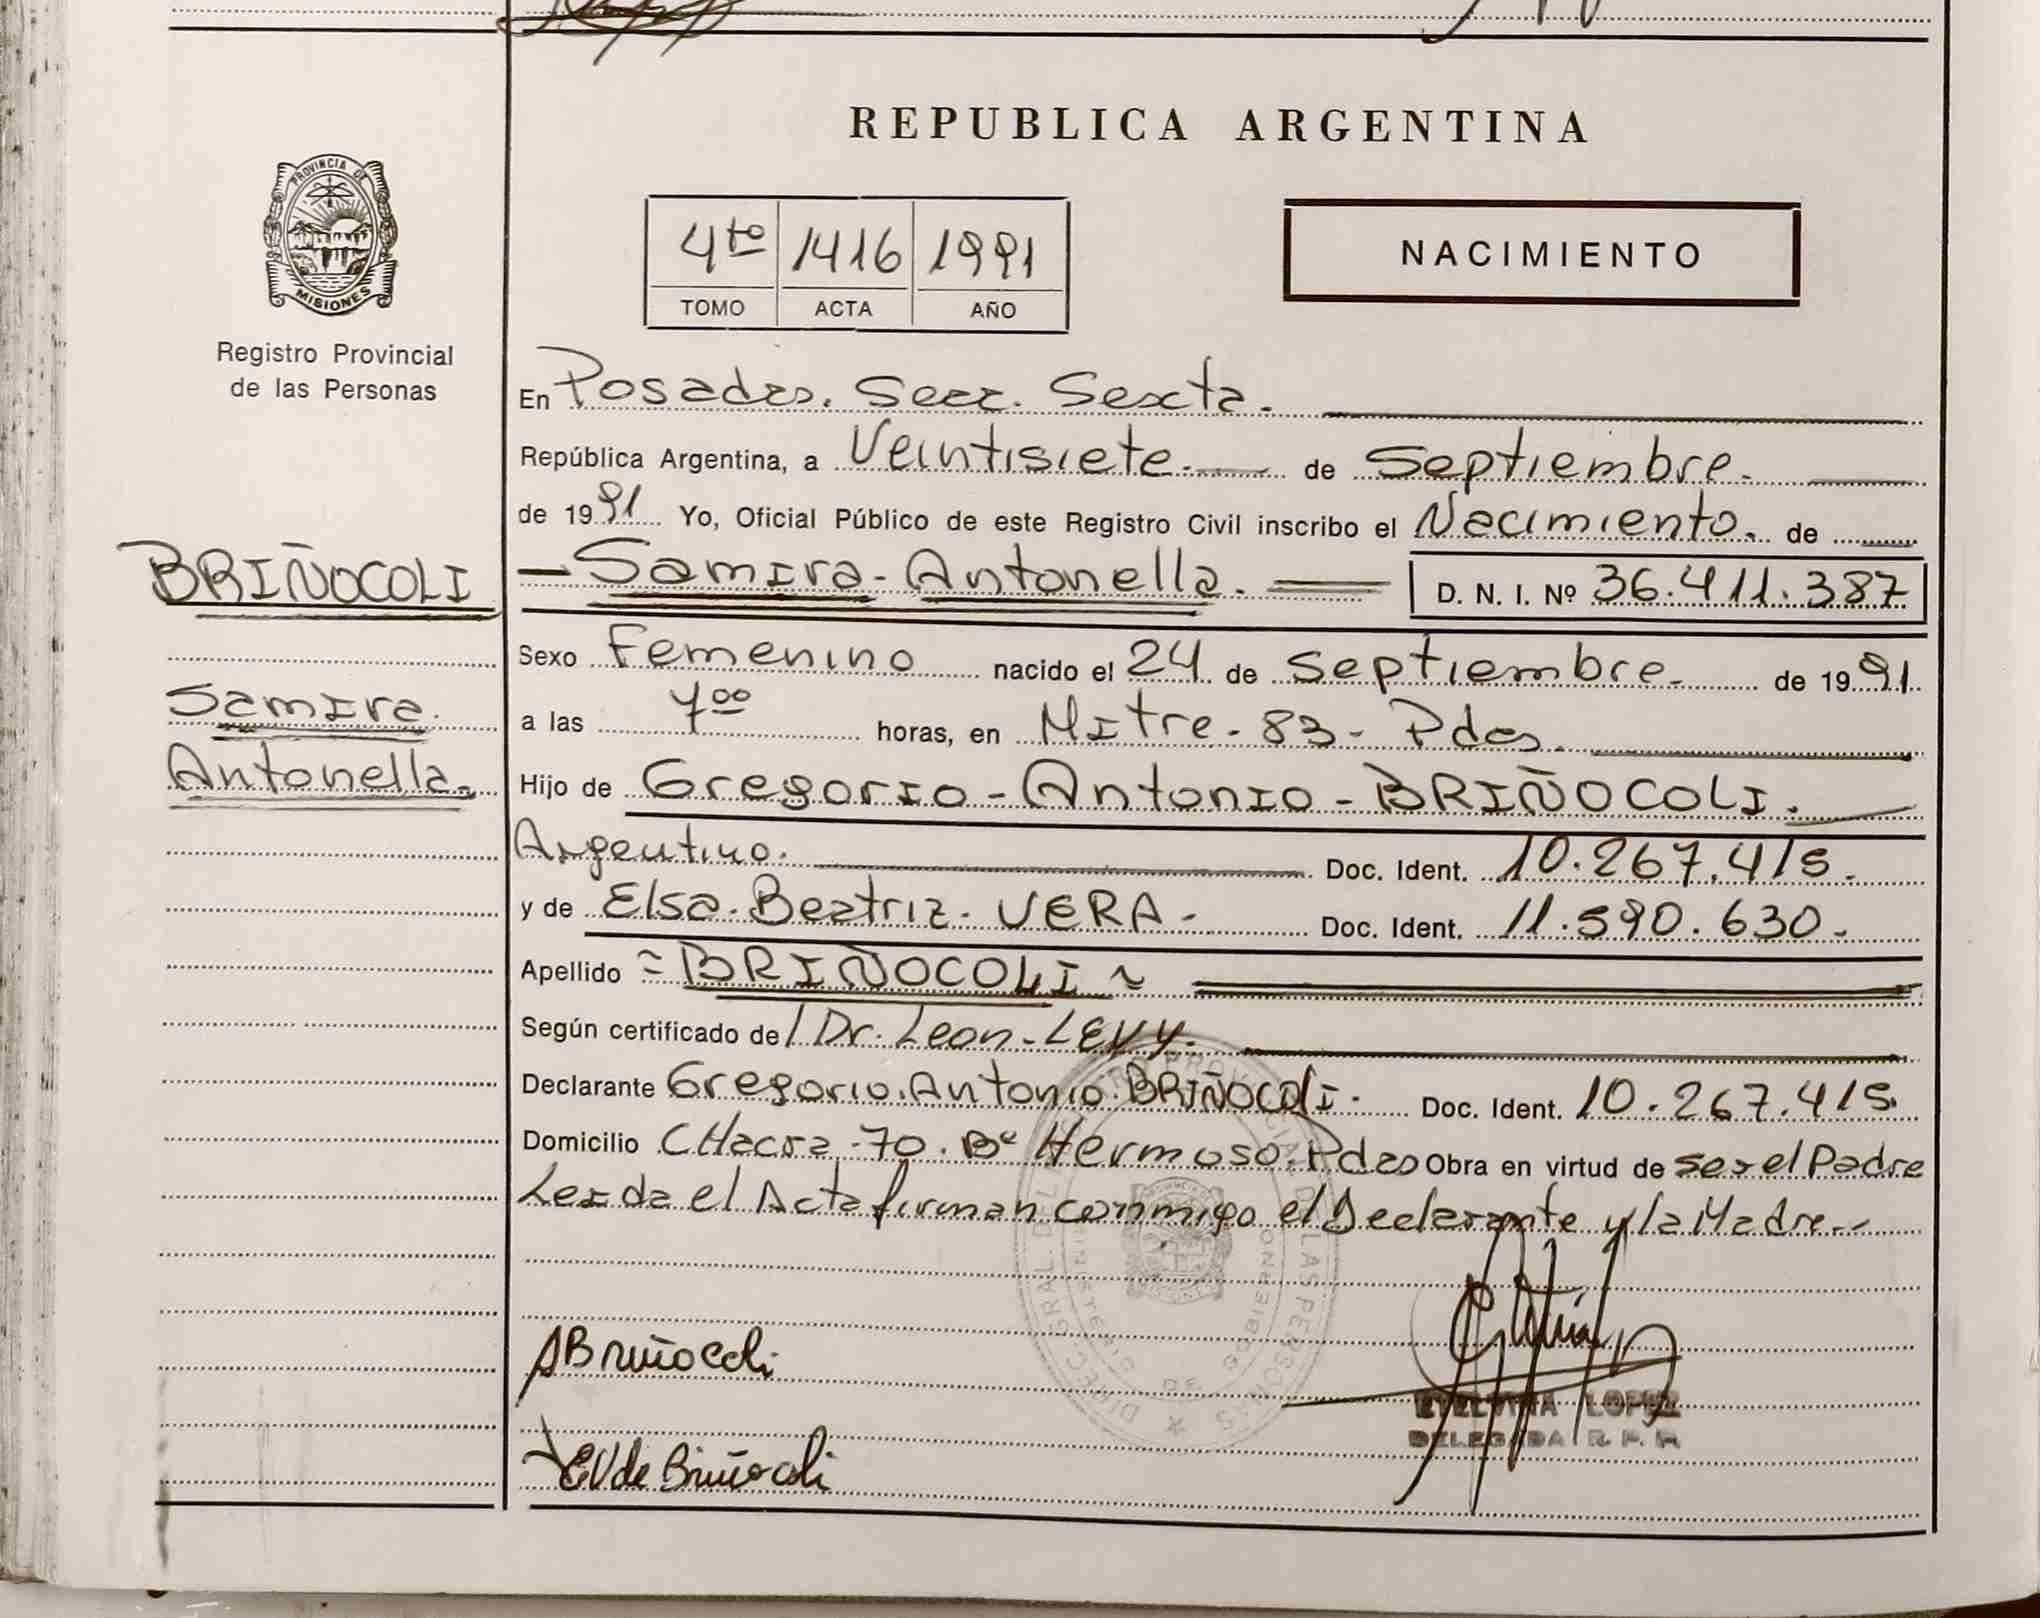 REPUBLICA ARGENTINA
PROVINCIA DE
MISIONES
Registro Provincial
de las Personas
4to 1416 1991
TOMO ACTA AÑO
NACIMIENTO
En Posadas. Secc. Sexta.
República Argentina, a Veintisiete. de Septiembre.
de 1991 Yo, Oficial Público de este Registro Civil inscribo el Nacimiento. de
BRIÑOCOLI
Samira
Antonella.
Samira - Antonella. D. N. I. Nº 36.411.387
Sexo Femenino nacido el 24 de Septiembre. de 1991.
a las 7oo horas, en Mitre - 83 - Pdas.
Hijo de Gregorio - Antonio - BRIÑOCOLI.
Argentino. Doc. Ident. 10.267.415.
y de Elsa. Beatriz. VERA - Doc. Ident. 11.590.630.
Apellido = BRIÑOCOLI ~
Según certificado de / Dr. Leon - LEVY.
Declarante Gregorio. Antonio. BRIÑOCOLI. Doc. Ident. 10.267.415.
Domicilio CHacra - 70. Bº Hermoso. Pdas Obra en virtud de ser el Padre
Leida el Acta firman conmigo el Declarante y la Madre.-
ABriñocoli
EV de Briñocoli
DIREC. GRAL. DEL REGISTRO PROVINCIAL DE LAS PERSONAS
MINISTERIO DE GOBIERNO
LOPEZ
DELEGADA R. P. P.